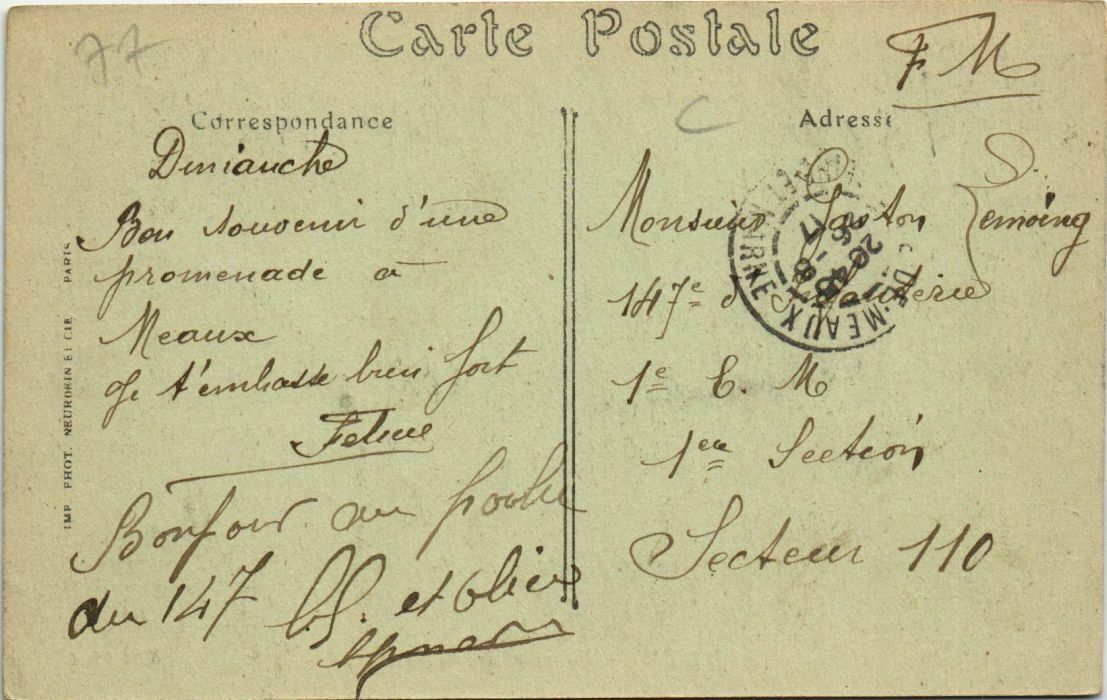 77
Carte Postale
F M
C
Correspondance
Dimanche
Bon souvenir d'une
promenade à
Meaux
Je t'embrasse bien fort
Bonjour au poilu
du 147
et olier
Adresse
Monsieur Gaston
147e d'Infanterie
1e C. M
1ere Section
Secteur 110
MEAUX
20 45
26 - 8
17
IMP. PHOT. NEURDEIN ET CIE PARIS